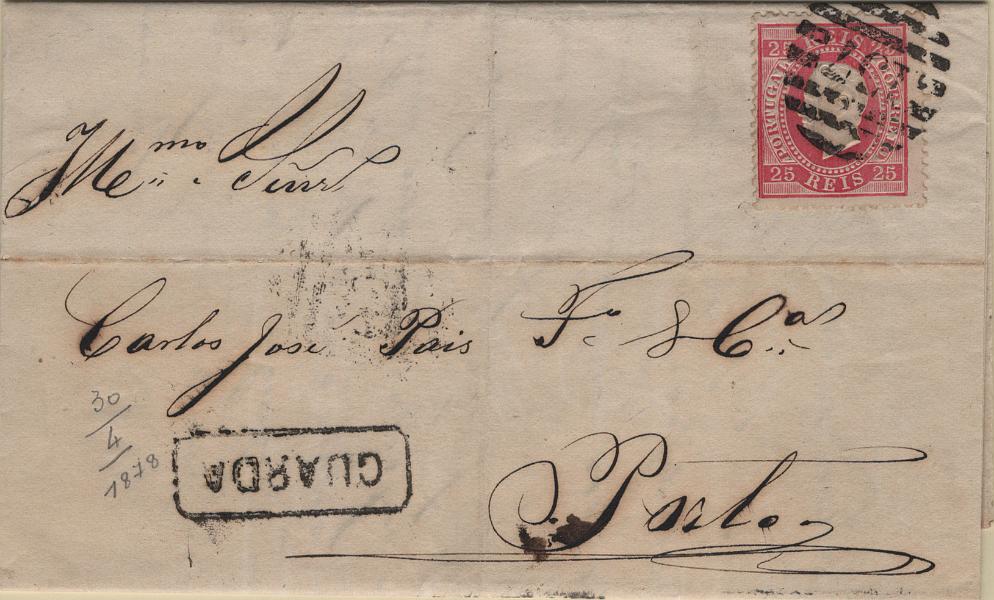 25 REIS 25
PORTUGAL CORREIO
25 REIS 25
Carlos José Pais F.º & C.as
30/4
1878
GUARDA
Porto